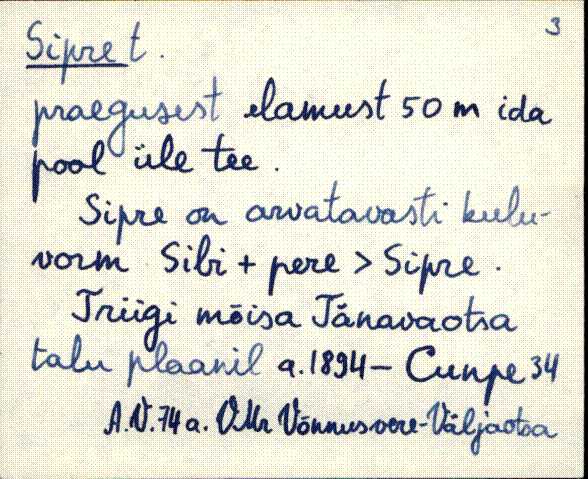 3
Sipre t.
praegusest elamust 50 m ida
pool üle tee.
Sipre on arvatavasti kulu-
vorm Sibi + pere > Sipre.
Triigi mõisa Tänavaotsa
talu plaanil a. 1894 – Cunpe 34
A.V. 74 a. VMr Võnnusvere-Väljaotsa